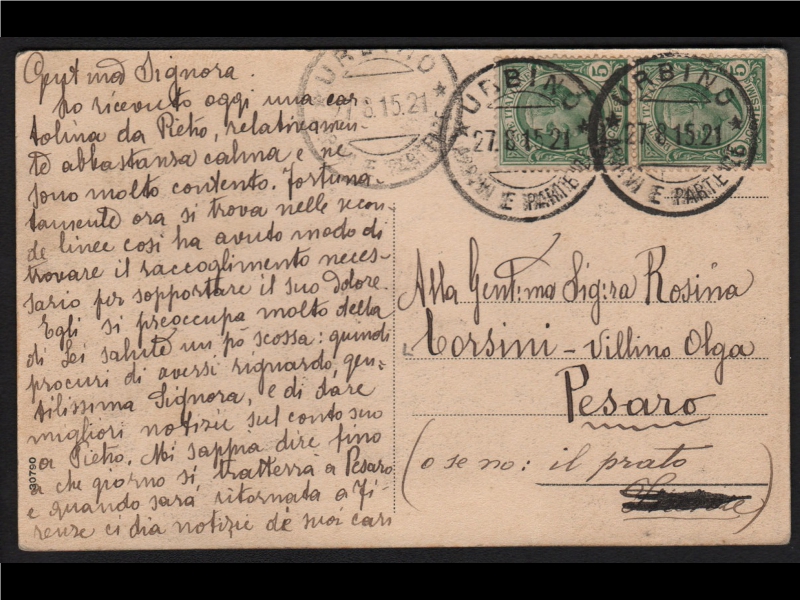 Gent.ma Signora.
ho ricevuto oggi una car
tolina da Pietro, relativamen-
te abbastanza calma e ne
sono molto contento. Fortuna-
tamente ora si trova nelle secon-
de linee così ha avuto modo di
trovare il raccoglimento neces-
sario per sopportare il suo dolore.
Egli si preoccupa molto della
di Lei salute un pò scossa: quindi
procuri di aversi riguardo, gen-
tilissima Signora, e di dare
migliori notizie sul conto suo
a Pietro. Mi sappia dire fino
a che giorno si tratterrà a Pesaro
e quando sarà ritornata a Fi-
renze ci dia notizie de suoi cari
30790
URBINO
27.8.15.21
URBINO
27.8.15.21
ARRIVI E PARTENZE
URBINO
27.8.15.21
ARRIVI E PARTENZE
5
5
Alla Gent.ma Sig.ra Rosina
Corsini - Villino Olga
Pesaro
(o se no: il prato
)